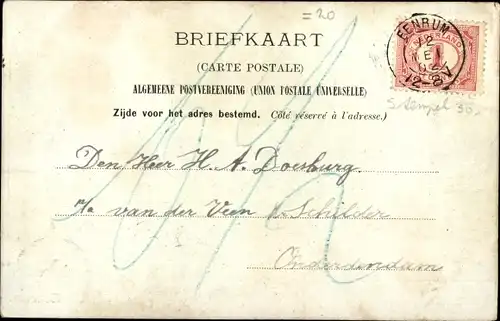 =20
BRIEFKAART
(CARTE POSTALE)
ALGEMEENE POSTVEREENIGING (UNION POSTALE UNIVERSELLE)
Zijde voor het adres bestemd. Côté réservé à l'adresse.)
NEDERLAND
1
EENRUM
12-8V
Stempel 30,
Den Heer H. A. Doesburg.
p/a van der Veen Schilder
Onderdendam